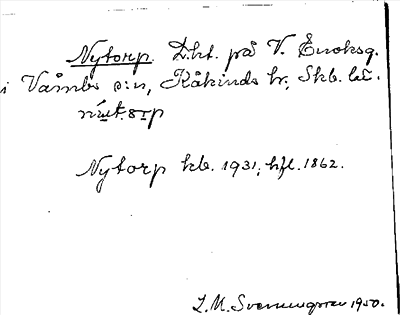 Nytorp. Lht. på V. Enoksg.
i Våmbs s:n, Kåkinds hd, Skb. län.
Nytorp kb. 1931, hfl. 1862.
L. M. Svenungsson 1950.